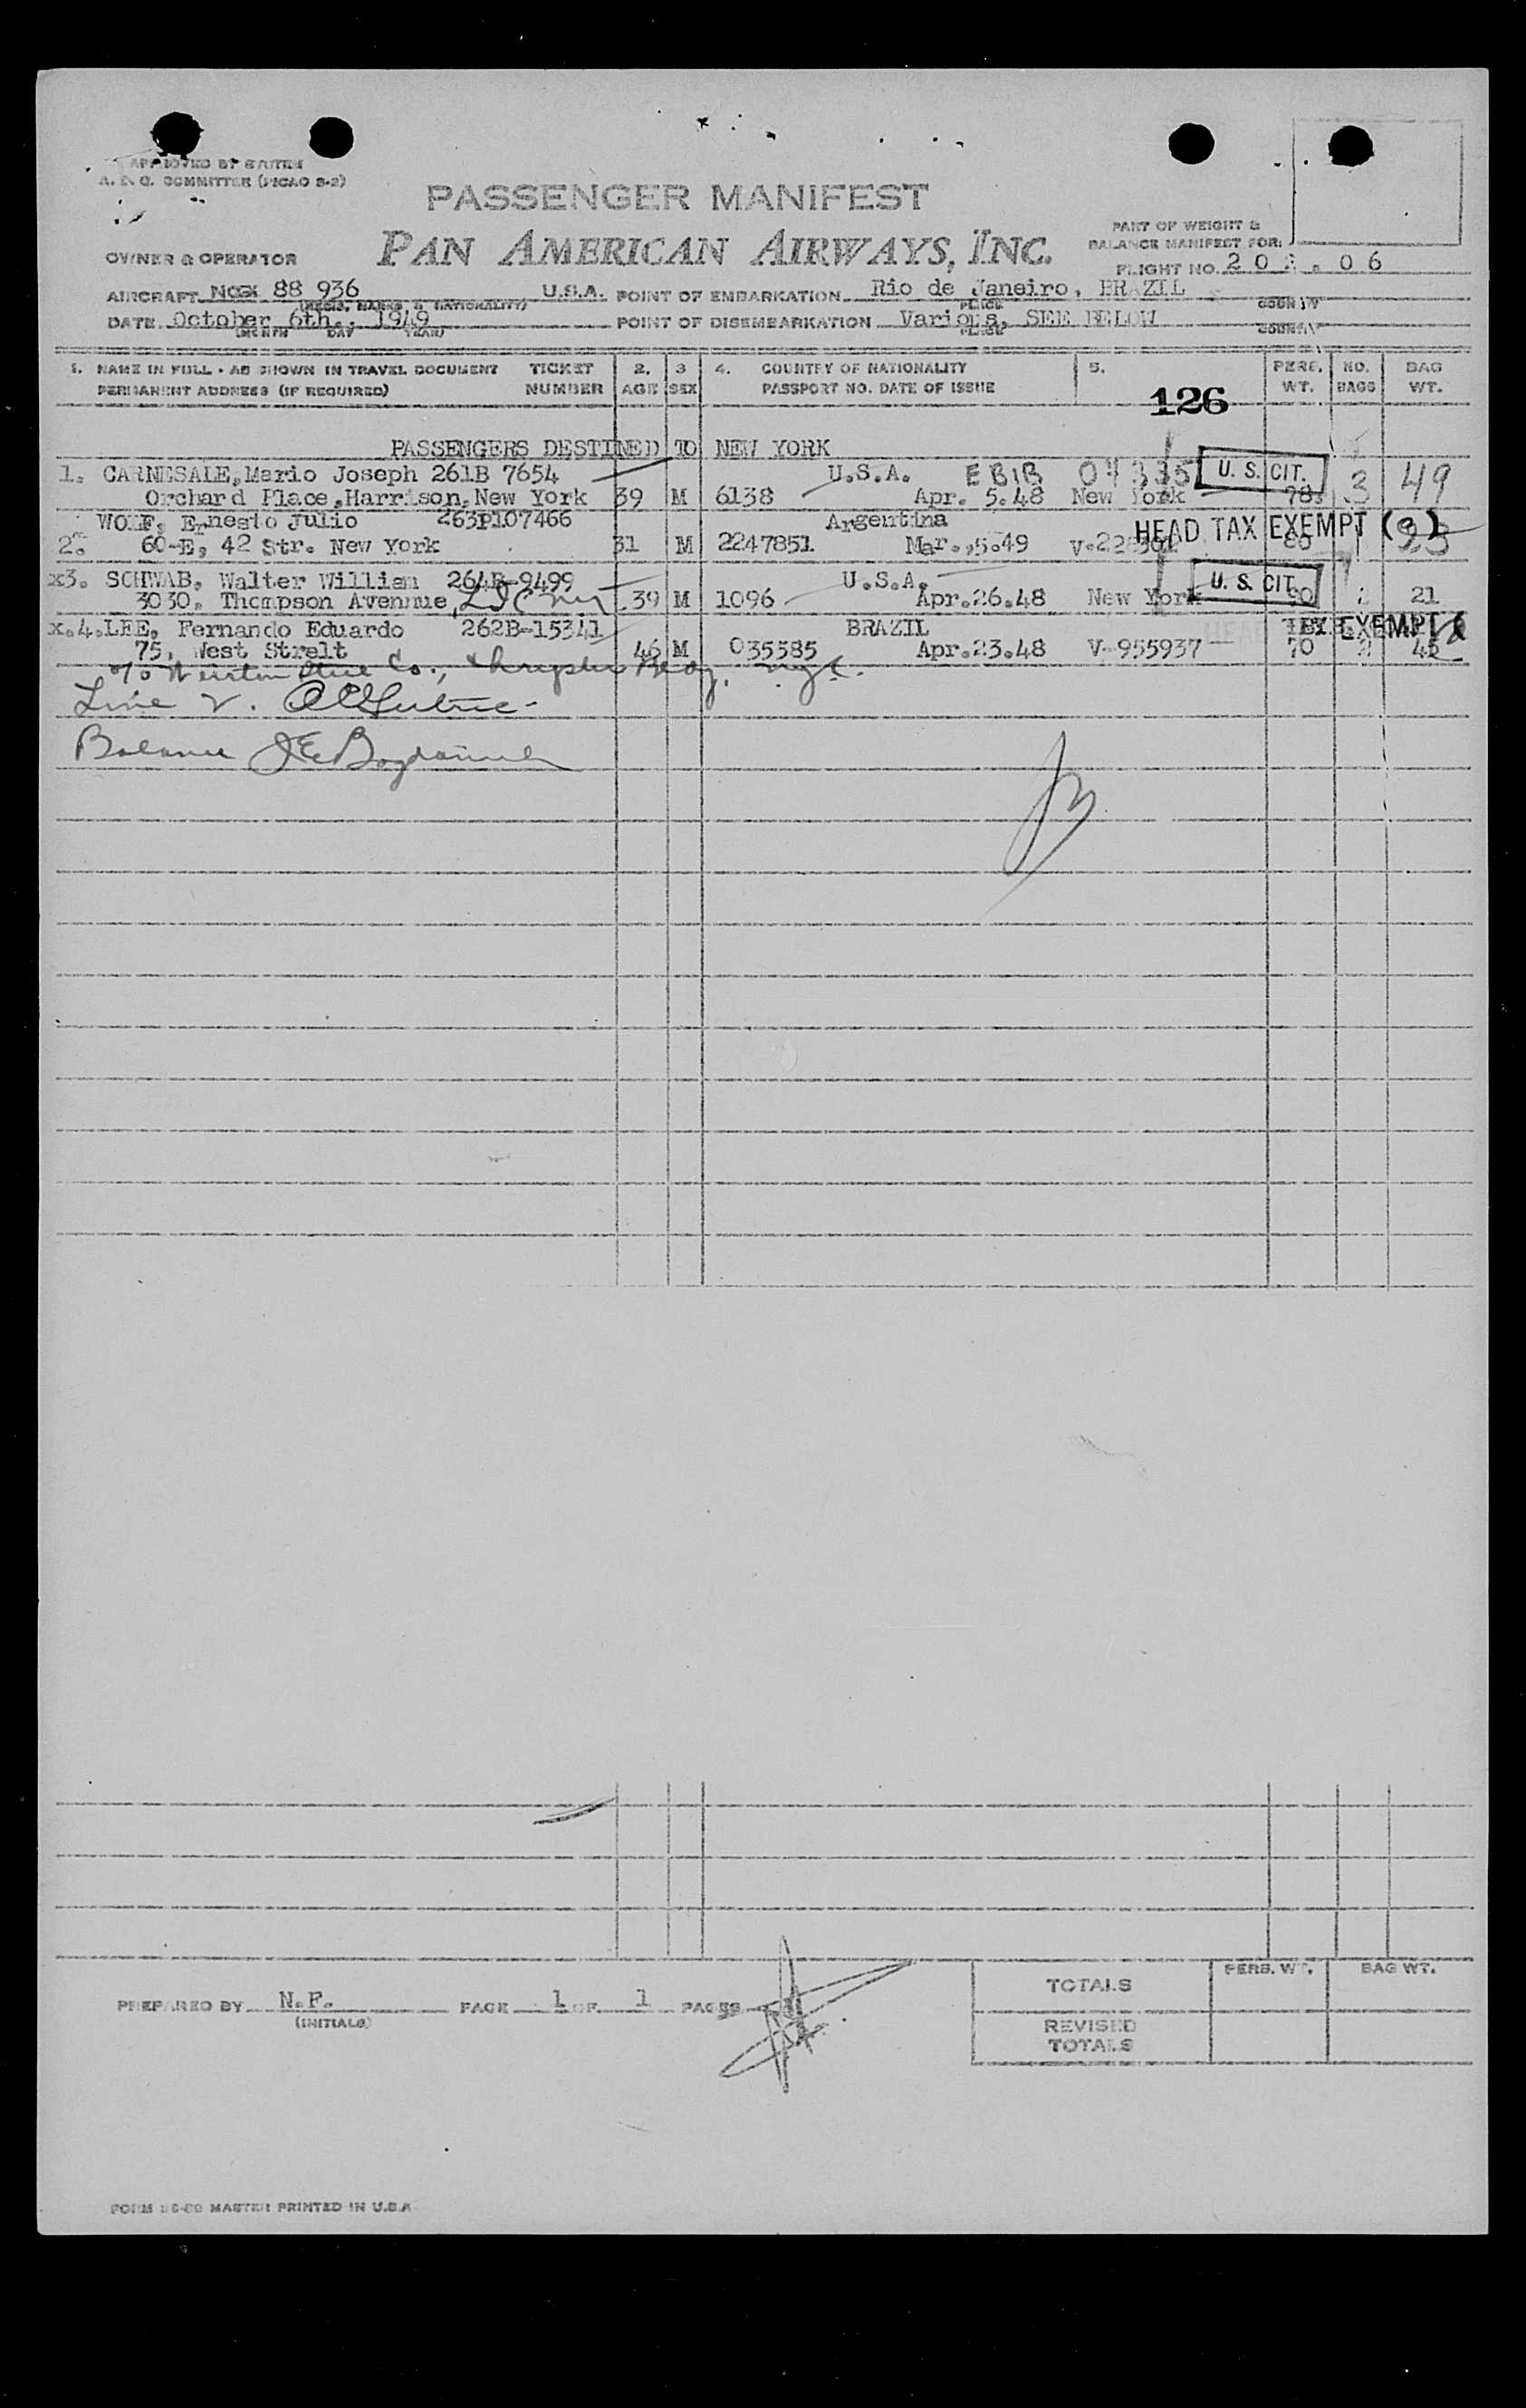 APPROVED BY
COMMITTEE (PICAO S-2)
PASSENGER MANIFEST
PAN AMERICAN AIRWAYS, INC.
PART OF WEIGHT &
BALANCE MANIFEST FOR:
OWNER & OPERATOR
FLIGHT NO. 202.06
AIRCRAFT 88 936 U.S.A. POINT OF EMBARKATION Rio de Janeiro, BRAZIL
(REGIS. MARKS & NATIONALITY) PLACE COUNTRY
DATE October 6th., 1949 POINT OF DISEMBARKATION Various, SEE BELOW
(MONTH DAY YEAR) PLACE COUNTRY
1. NAME IN FULL - AS SHOWN IN TRAVEL DOCUMENT TICKET 2. 3 4. COUNTRY OF NATIONALITY 5. PERS. NO. BAG
PERMANENT ADDRESS (IF REQUIRED) NUMBER AGE SEX PASSPORT NO. DATE OF ISSUE WT. BAGS WT.
126
PASSENGERS DESTINED TO NEW YORK
1. CARNESALE, Mario Joseph 261B 7654 U.S.A. U. S. CIT. 3 49
Orchard Place, Harrison, New York 39 M 6138 Apr. 5.48 New York 78
WOLF, Ernesto Julio 263P107466 Argentina HEAD TAX EXEMPT
2. 60-E, 42 Str. New York 31 M 2247851 Mar.,5.49
x3. SCHWAB, Walter William 264B-9499 U.S.A. U. S. CIT.
3030, Thompson Avennue, 39 M 1096 Apr.26.48 New York 21
x.4. LEE, Fernando Eduardo 262B-15341 BRAZIL EXEMPT
75, West Streit 46 M 035585 Apr.23.48 V-955937 70
Line
Balance
TOTALS PERS. WT. BAG WT.
PREPARED BY N.F. PAGE 1 OF 1 PAGES
(INITIALS)
REVISED
TOTALS
MASTER PRINTED IN U.S.A